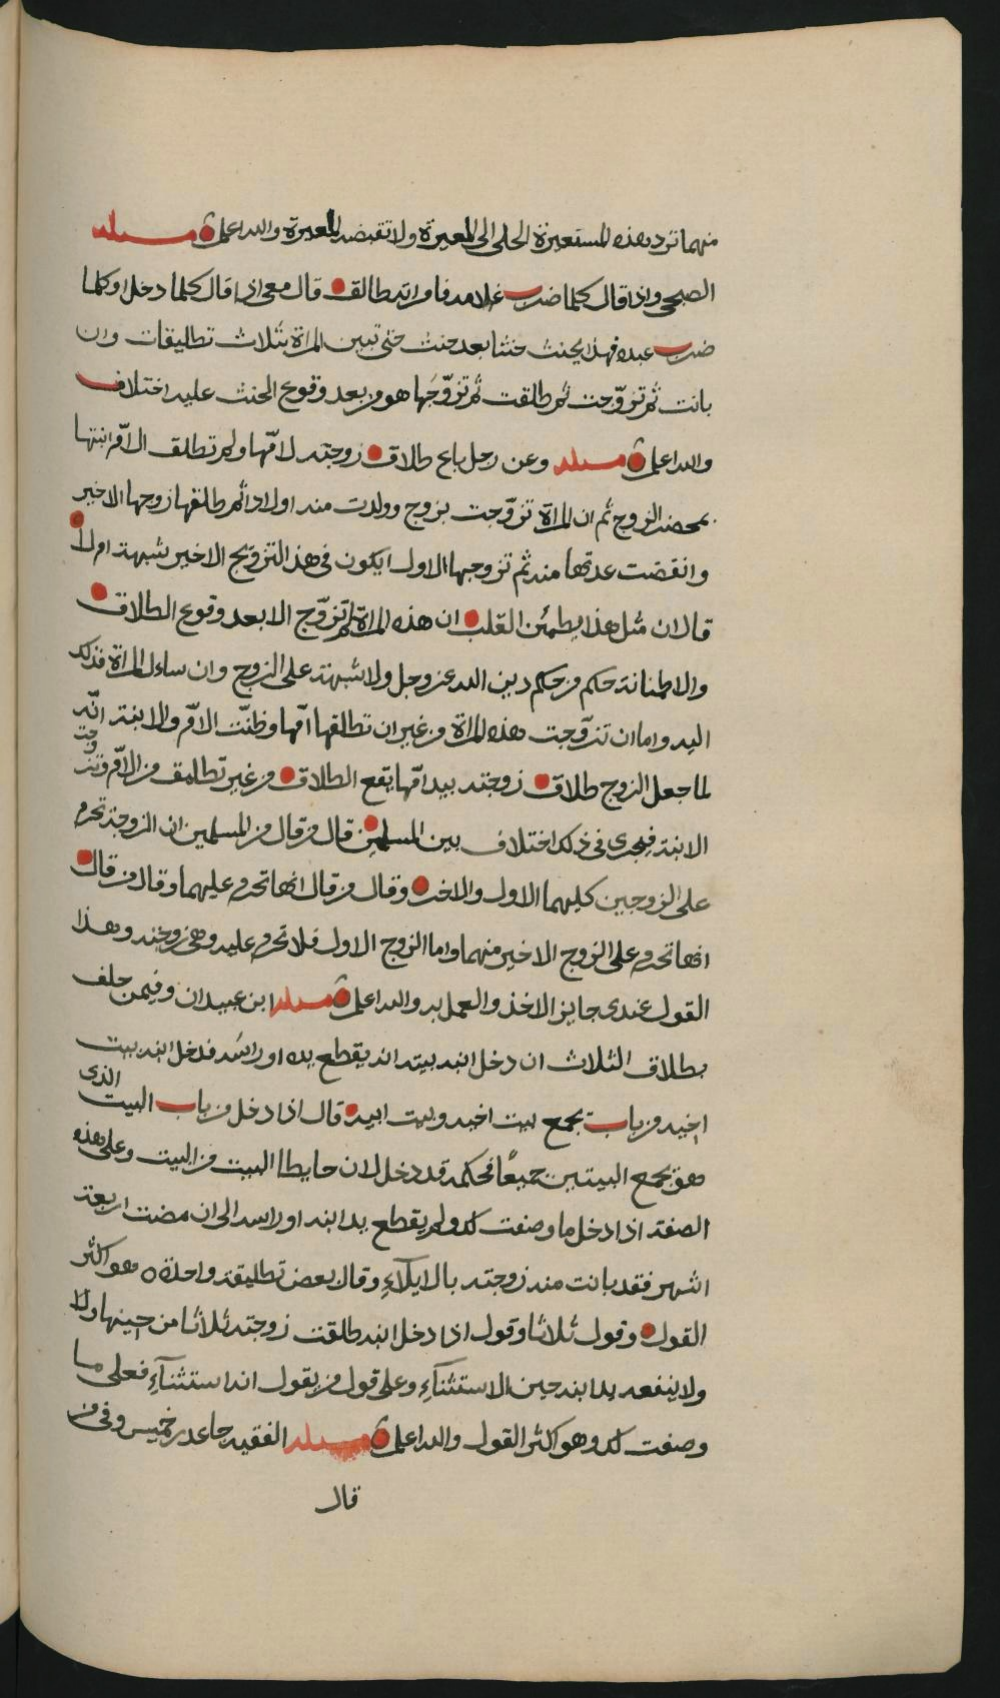 منهما ترد هذه المستعيرة الحلي الى المعيرة ولا تقبضه المعيرة والله اعلم مسئلة
الصبحي واذا قال كلما ضرب غلامه فامراته طالق قال معي اذا قال كلما دخل او كلما
ضرب عبده فهذا يحنث حنثا بعد حنث حتى تبين المراة بثلاث تطليقات وان
بانت ثم تزوّجت ثم طلقت ثم تزوّجها هو من بعد وقوع الحنث عليه اختلاف
والله اعلم مسئلة وعن رجل باع طلاق زوجته لامّها ولم تطلق الامّ ابنتها
بمحضر الزوج ثم ان المراة تزوّجت بزوج وولدت منه اولادا ثم طلقها زوجها الاخير
وانقضت عدتها منه ثم تزوجها الاول ايكون في هذا التزويج الاخير شبهة ام لا
قال ان مثل هذا يطمئن القلب ان هذه المراة لم تزوّج الا بعد وقوع الطلاق
والاطمنانة حكم من حكم دين الله عز وجل ولا شبهة على الزوج وان ساءل المراة فذلك
اليه واما ان تزوّجت هذه المراة من غير ان تطلقها امّها وظنّت الامّ والابنة انّه
لما جعل الزوج طلاق زوجته بيد امّها يقع الطلاق من غير تطليق من الامّ وتزوجت
الابنة فيجرى في ذلك اختلاف بين المسلمين قال من قال من المسلمين ان الزوجة تحرم
على الزوجين كليهما الاول والاخر وقال من قال انها تحرم عليهما وقال من قال
انها تحرم على الزوج الاخير منهما واما الزوج الاول فلا تحرم عليه وهي زوجته وهذا
القول عندي جايز الاخذ والعمل به والله اعلم مسئلة ابن عبيدان وفيمن حلف
بطلاق الثلاث ان دخل ابنه بيته انه يقطع يده او راسه فدخل ابنه بيت
اخيه من باب يجمع بيت اخيه وبيت ابيه قال اذا دخل من باب البيت الذى
هو يجمع البيتين جميعًا فحكمه قد دخل لان حايطا البيت من البيت وعلى هذه
الصفة اذا دخل ما وصفت لك ولم يقطع يد ابنه او راسه الى ان مضت اربعة
اشهر فقد بانت منه زوجته بالايلآء وقال بعض تطليقة واحدة وهو اكثر
القول وقول ثلاثا وقول اذا دخل ابنه طلقت زوجته ثلاثا من حينها ولا
ولا ينفعه يد ابنه حين الاستثنآء وعلى قول من يقول انه استثنآء فعلى ما
وصفت لك وهو اكثر القول والله اعلم مسئلة الفقيه جاعد بن خميس وفي من
قال